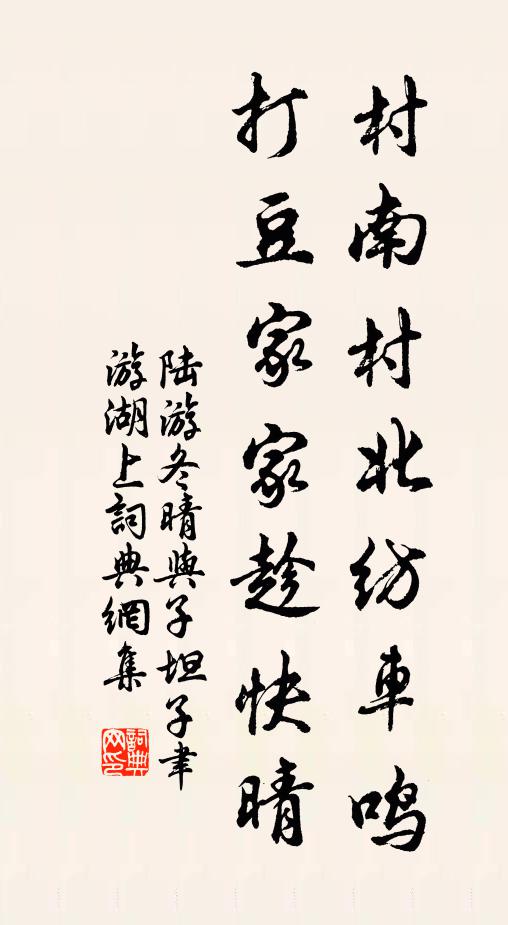 村南村北纺車鸣
打豆家家趁快晴
陆游冬晴與子坦子聿
游湖上詞典網集
詞典網印